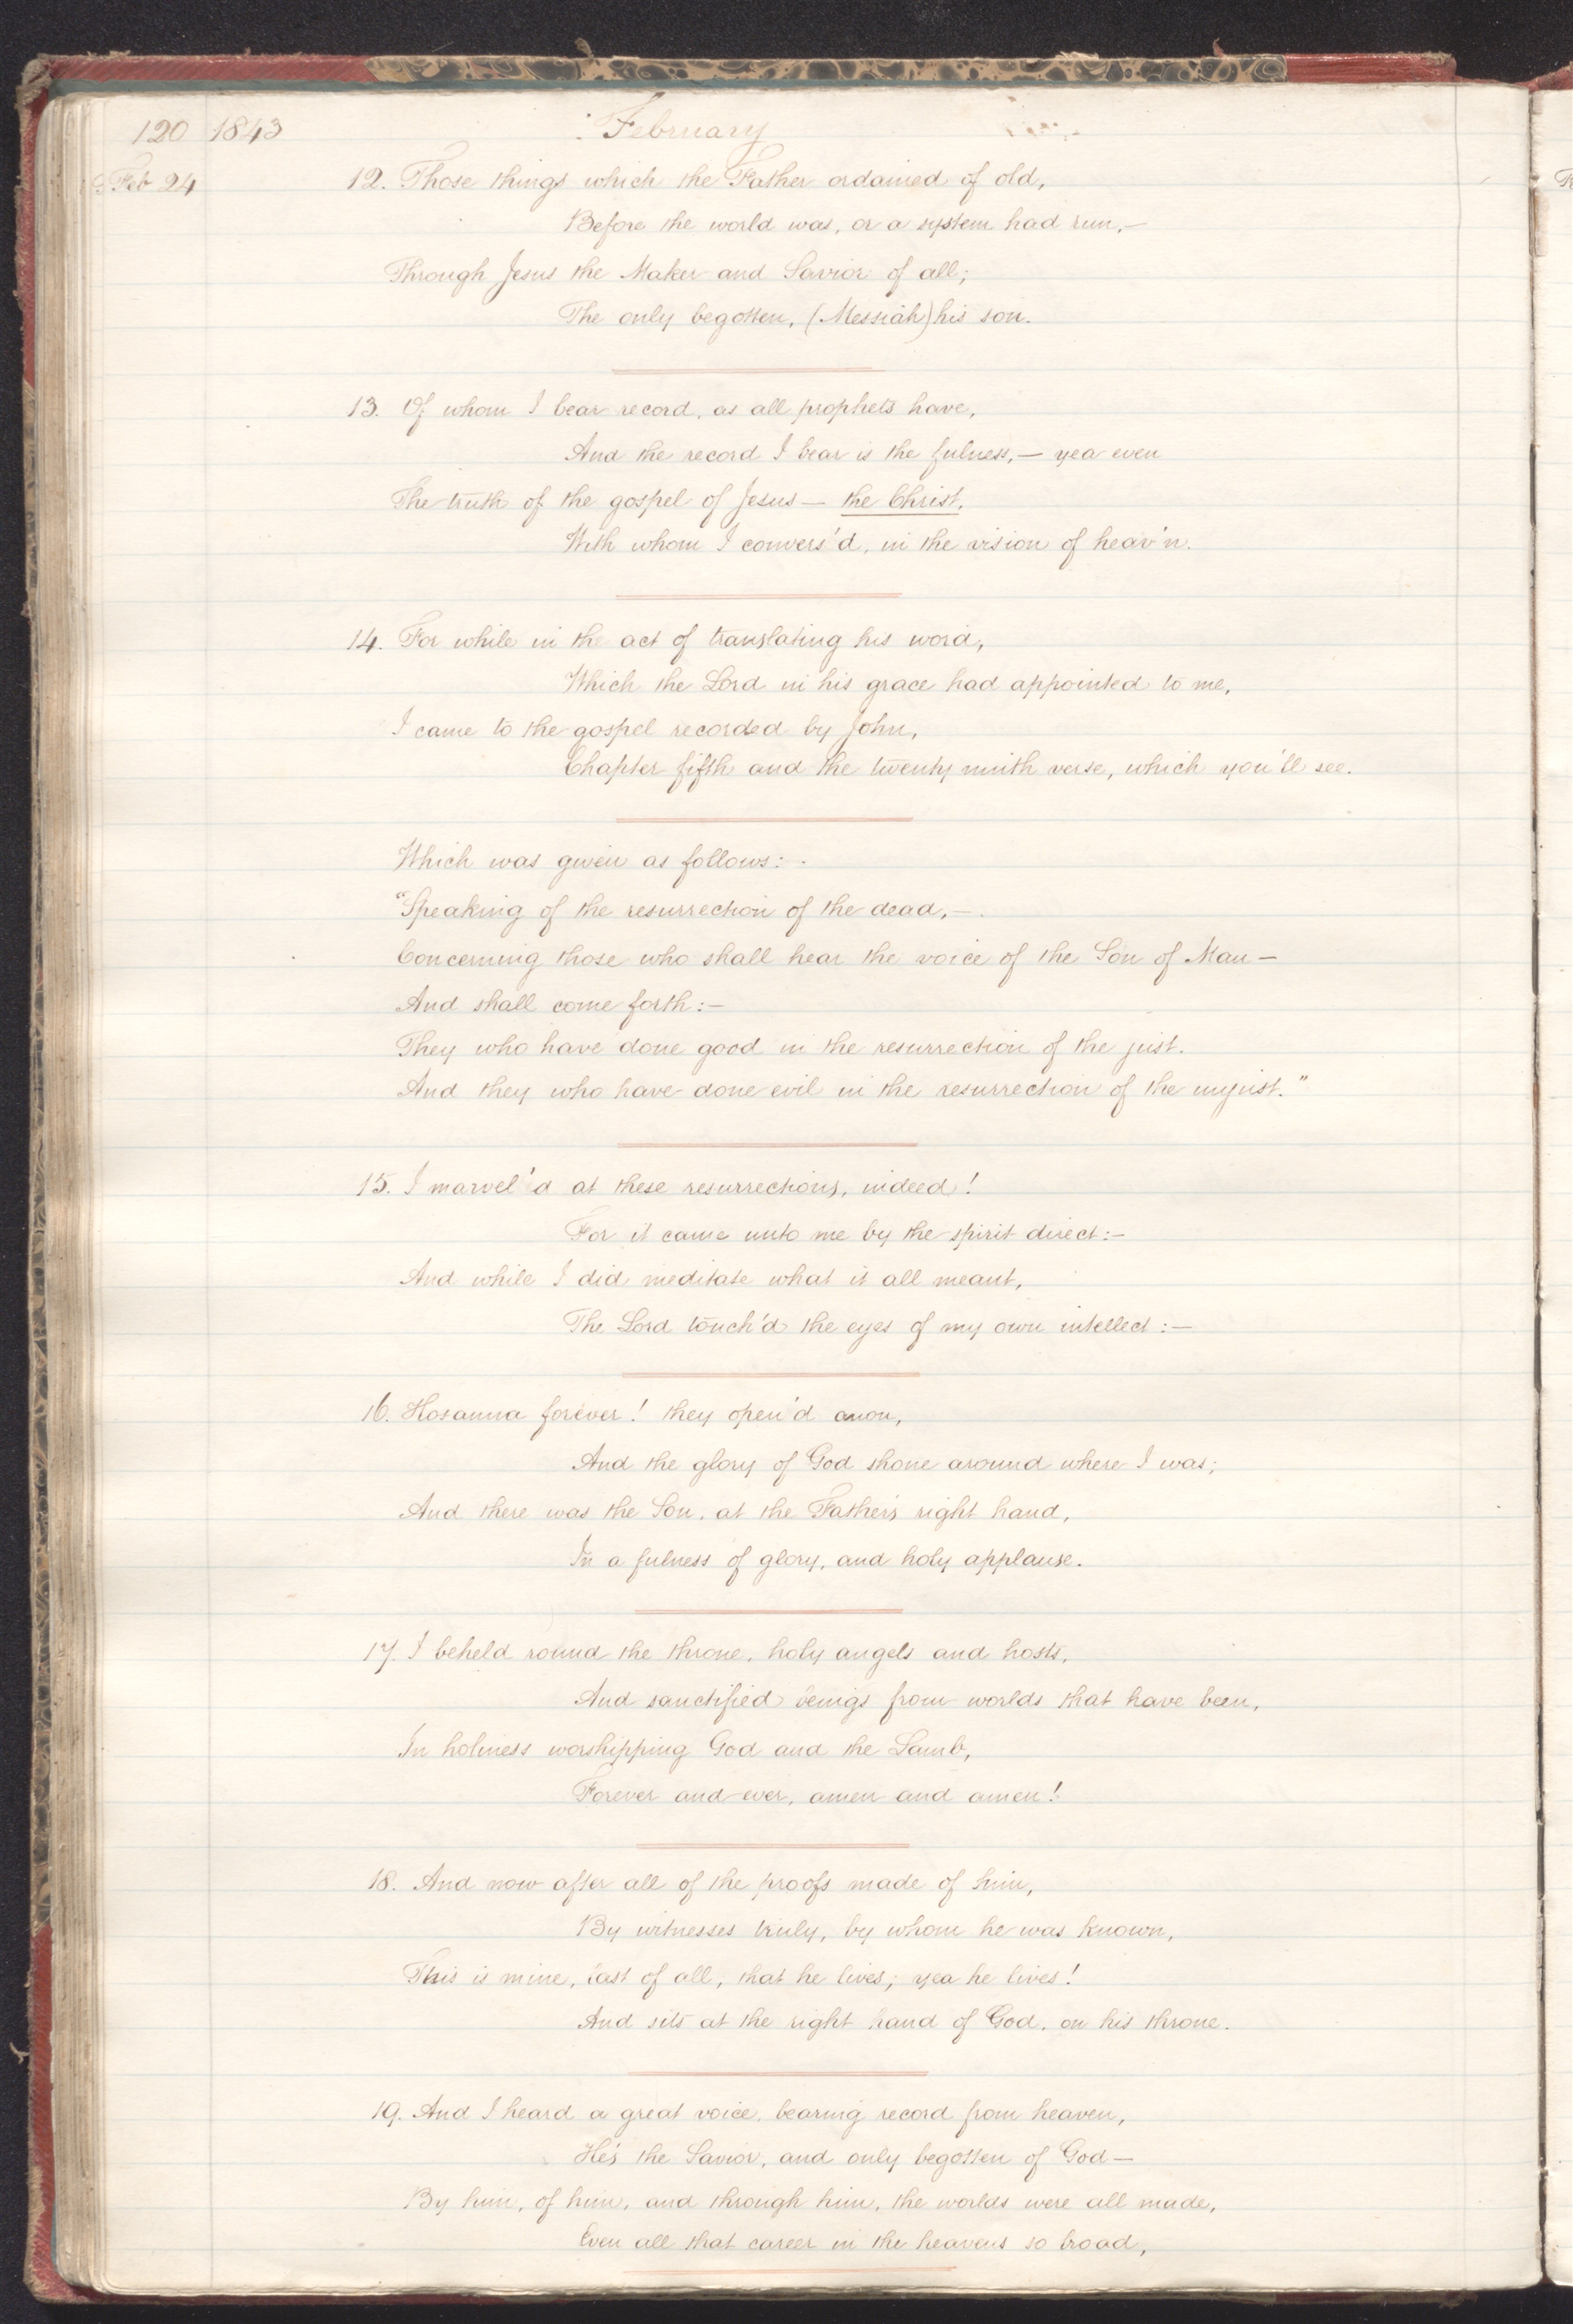 120 1843 February
Feb 24 12. Those things which the Father ordained of old,
Before the world was, or a system had run,—
Through Jesus the Maker and Savior of all;
The only begotten, (Messiah) his son.
13. Of whom I bear record, as all prophets have,
And the record I bear is the fulness,— yea even
The truth of the gospel of Jesus— the Christ,
With whom I convers'd, in the vision of heav'n.
14. For while in the act of translating his word,
Which the Lord in his grace had appointed to me,
I came to the gospel recorded by John,
Chapter fifth and the twenty ninth verse, which you'll see.
Which was given as follows:-
"Speaking of the resurrection of the dead,—
Concerning those who shall hear the voice of the Son of Man—
And shall come forth:—
They who have done good in the resurrection of the just.
And they who have done evil in the resurrection of the unjust."
15. I marvel'd at these resurrections, indeed!
For it came unto me by the spirit direct:—
And while I did meditate what it all meant,
The Lord touch'd the eyes of my own intellect:—
16. Hosanna forever! they open'd anon,
And the glory of God shone around where I was;
And there was the Son, at the Father's right hand,
In a fulness of glory, and holy applause.
17. I beheld round the throne, holy angels and hosts,
And sanctified beings from worlds that have been,
In holiness worshipping God and the Lamb,
Forever and ever, amen and amen!
18. And now after all of the proofs made of him,
By witnesses truly, by whom he was known,
This is mine, last of all, that he lives; yea he lives!
And sits at the right hand of God, on his throne.
19. And I heard a great voice, bearing record from heaven,
He's the Savior, and only begotten of God—
By him, of him, and through him, the worlds were all made,
Even all that career in the heavens so broad,